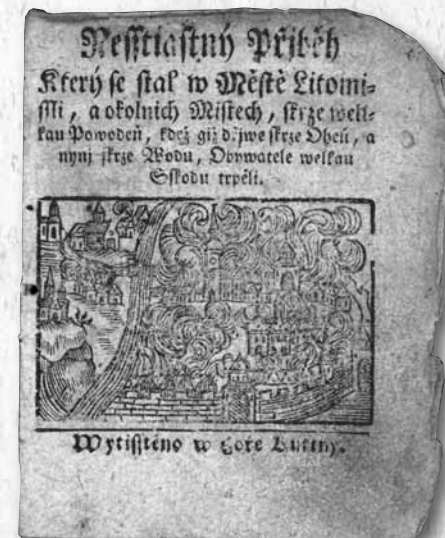 Nesstiastný Přjběh
Který se stal w Městě Litomi=
ssli, a okolnich Mistech, skrze wel=
kau Powodeň, kdež giž držjwe skrze Oheň, a
nynj skrze Wodu, Obywatele welkau
Sskodu trpěli.
Wytisstěno w Hoře